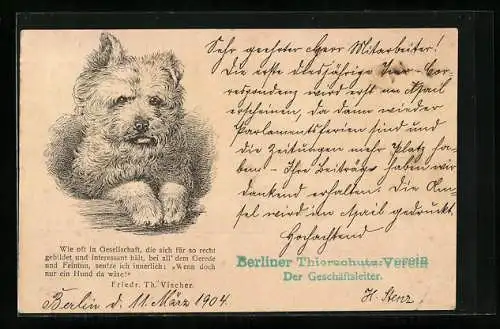 Sehr geehrter Herr Mitarbeiter!
Die erste diesjährige Tier-Cor-
respondenz wird erst im April
erscheinen, da dann wieder
Parlamentsferien sind und
die Zeitungen mehr Platz ha-
ben. – Ihre Beiträge haben wir
dankend erhalten. Die Am-
sel wird im April gedruckt.
Hochachtend
Berliner Thierschutz-Verein
Der Geschäftsleiter.
H. Stenz
Wie oft in Gesellschaft, die sich für so recht
gebildet und interessant hält, bei all' dem Gerede
und Feintun, seufze ich innerlich: „Wenn doch
nur ein Hund da wäre!"
Friedr. Th. Vischer.
Berlin d. 11. März 1904.